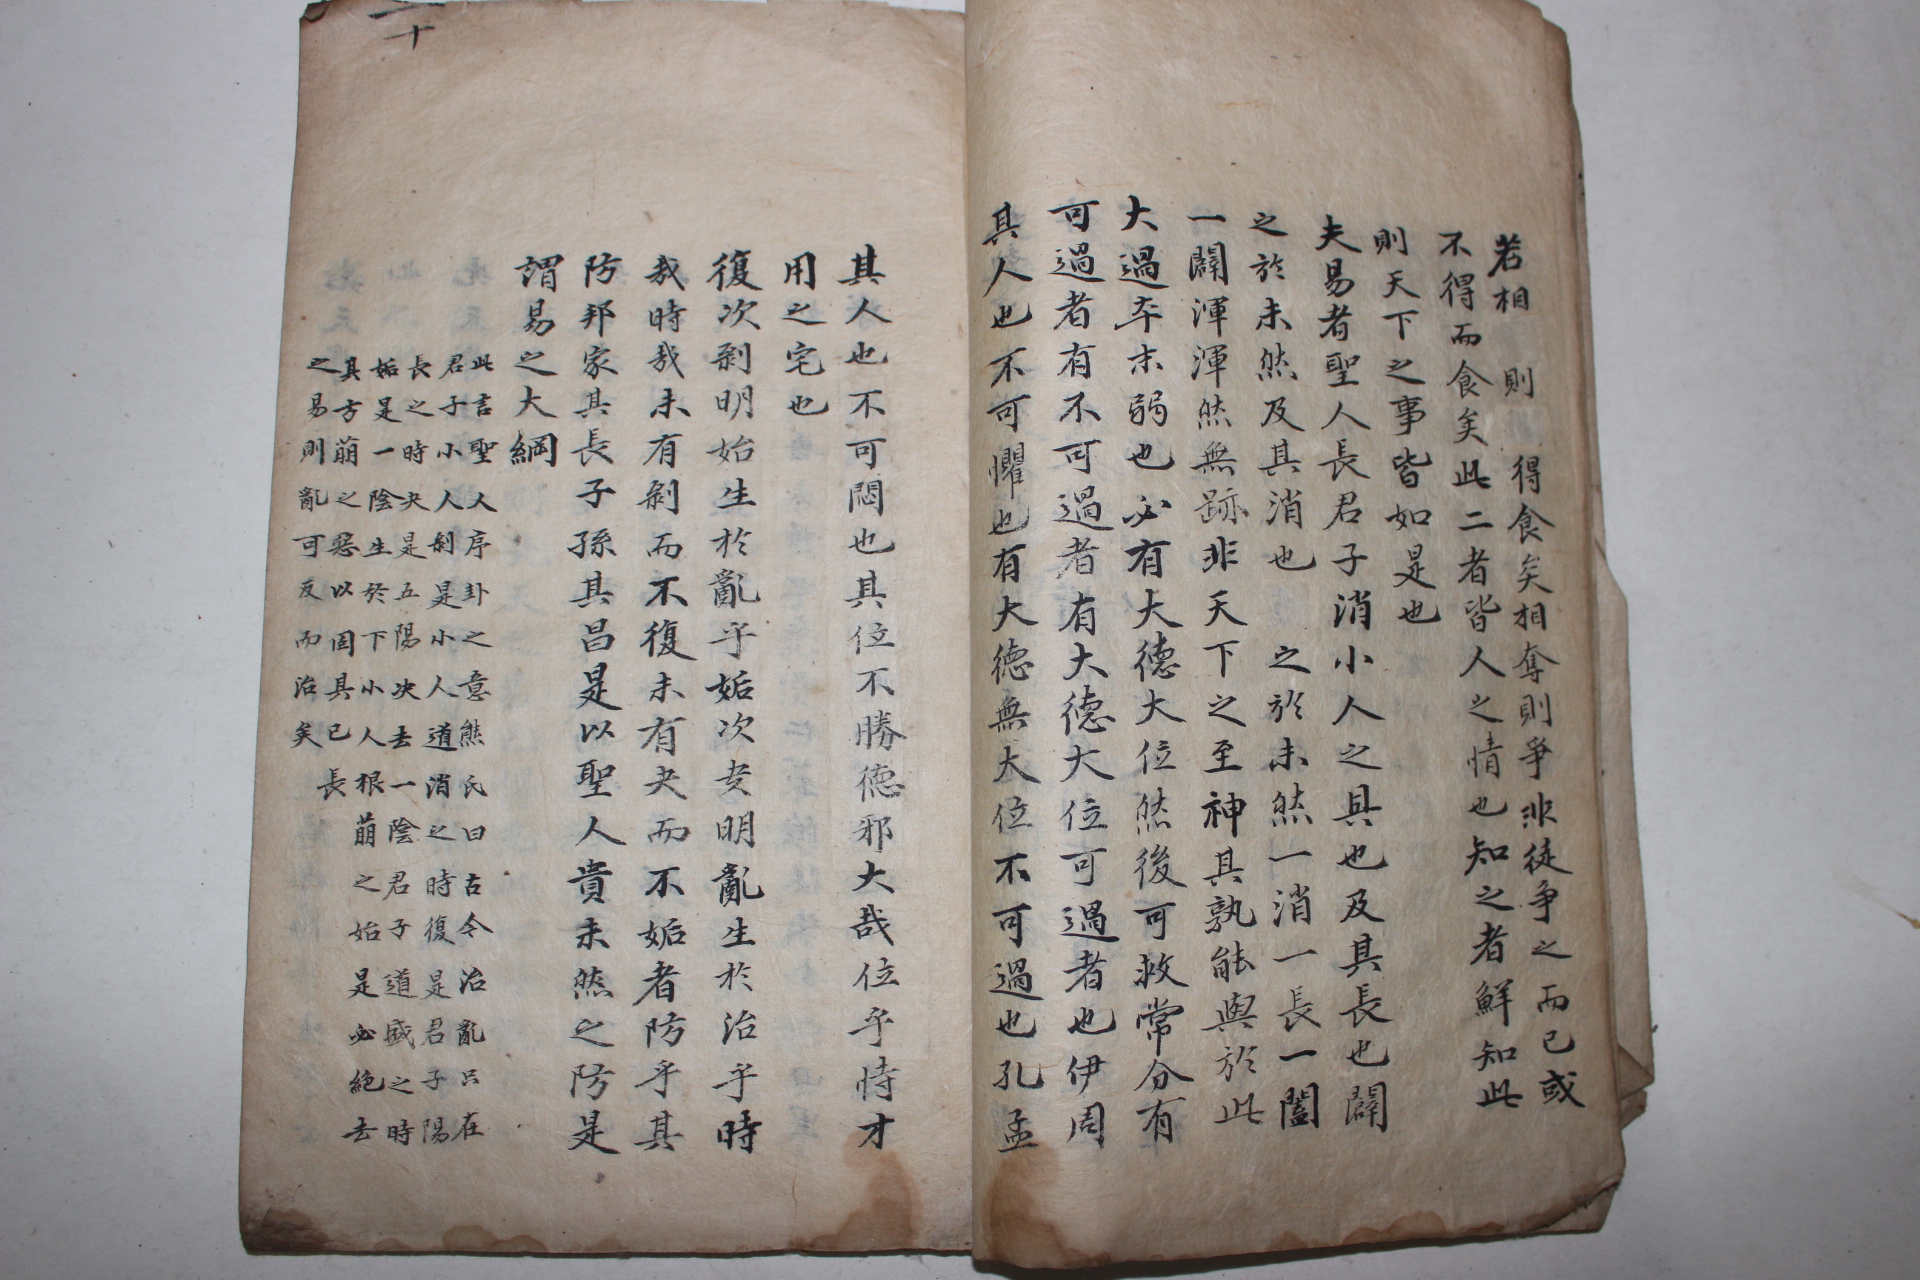 若相 則 得食矣相奪則爭非徒争之而已或
不得而食矣此二者皆人之情也知之者鮮知此
則天下之事皆如是也
夫易者聖人長君子消小人之具也及其長也闢
之於未然及其消也 之於未然一消一長一闔
一闢渾渾然無跡非天下之至神其孰能與於此
大過本末弱也必有大德大位然後可救常分有
可過者有不可過者有大德大位可過者也伊周
其人也不可懼也有大德無大位不可過也孔孟
其人也不可悶也其位不勝德邪大哉位乎待才
用之宅也
復次剝明始生於亂乎姤次夬明亂生於治乎時
哉時哉未有剝而不復未有夬而不姤者防乎其
防邦家其長子孫其昌是以聖人貴未然之防是
謂易之大綱
此言聖人序卦之意熊氏曰古今治亂只在
君子小人剝是小人道消之時復是君子陽
長之時夬是五陽決去一陰君子道盛之時
姤是一陰生於下小人根萌之始是必絶去
其方萌之惡以固其已長
之易則亂可反而治矣
十